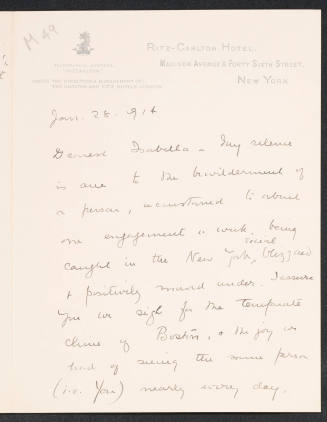 M 49
RITZ-CARLTON HOTEL.
MADISON AVENUE & FORTY SIXTH STREET,
NEW YORK
TELEGRAPHIC ADDRESS,
"RITZCARLTON"
UNDER THE DIRECTION & MANAGEMENT OF
THE CARLTON AND RITZ HOTELS LONDON
Jan. 28. 1914
Dearest Isabella - My silence
is due to the bewilderment of
a person, accustomed to about
one engagement a week, being
caught in the New York, social blizzard
& positively snowed under. I assure
You we sigh for the temperate
clime of Boston, & the joy we
had of seeing the same person
(i.e. You) nearly every day.